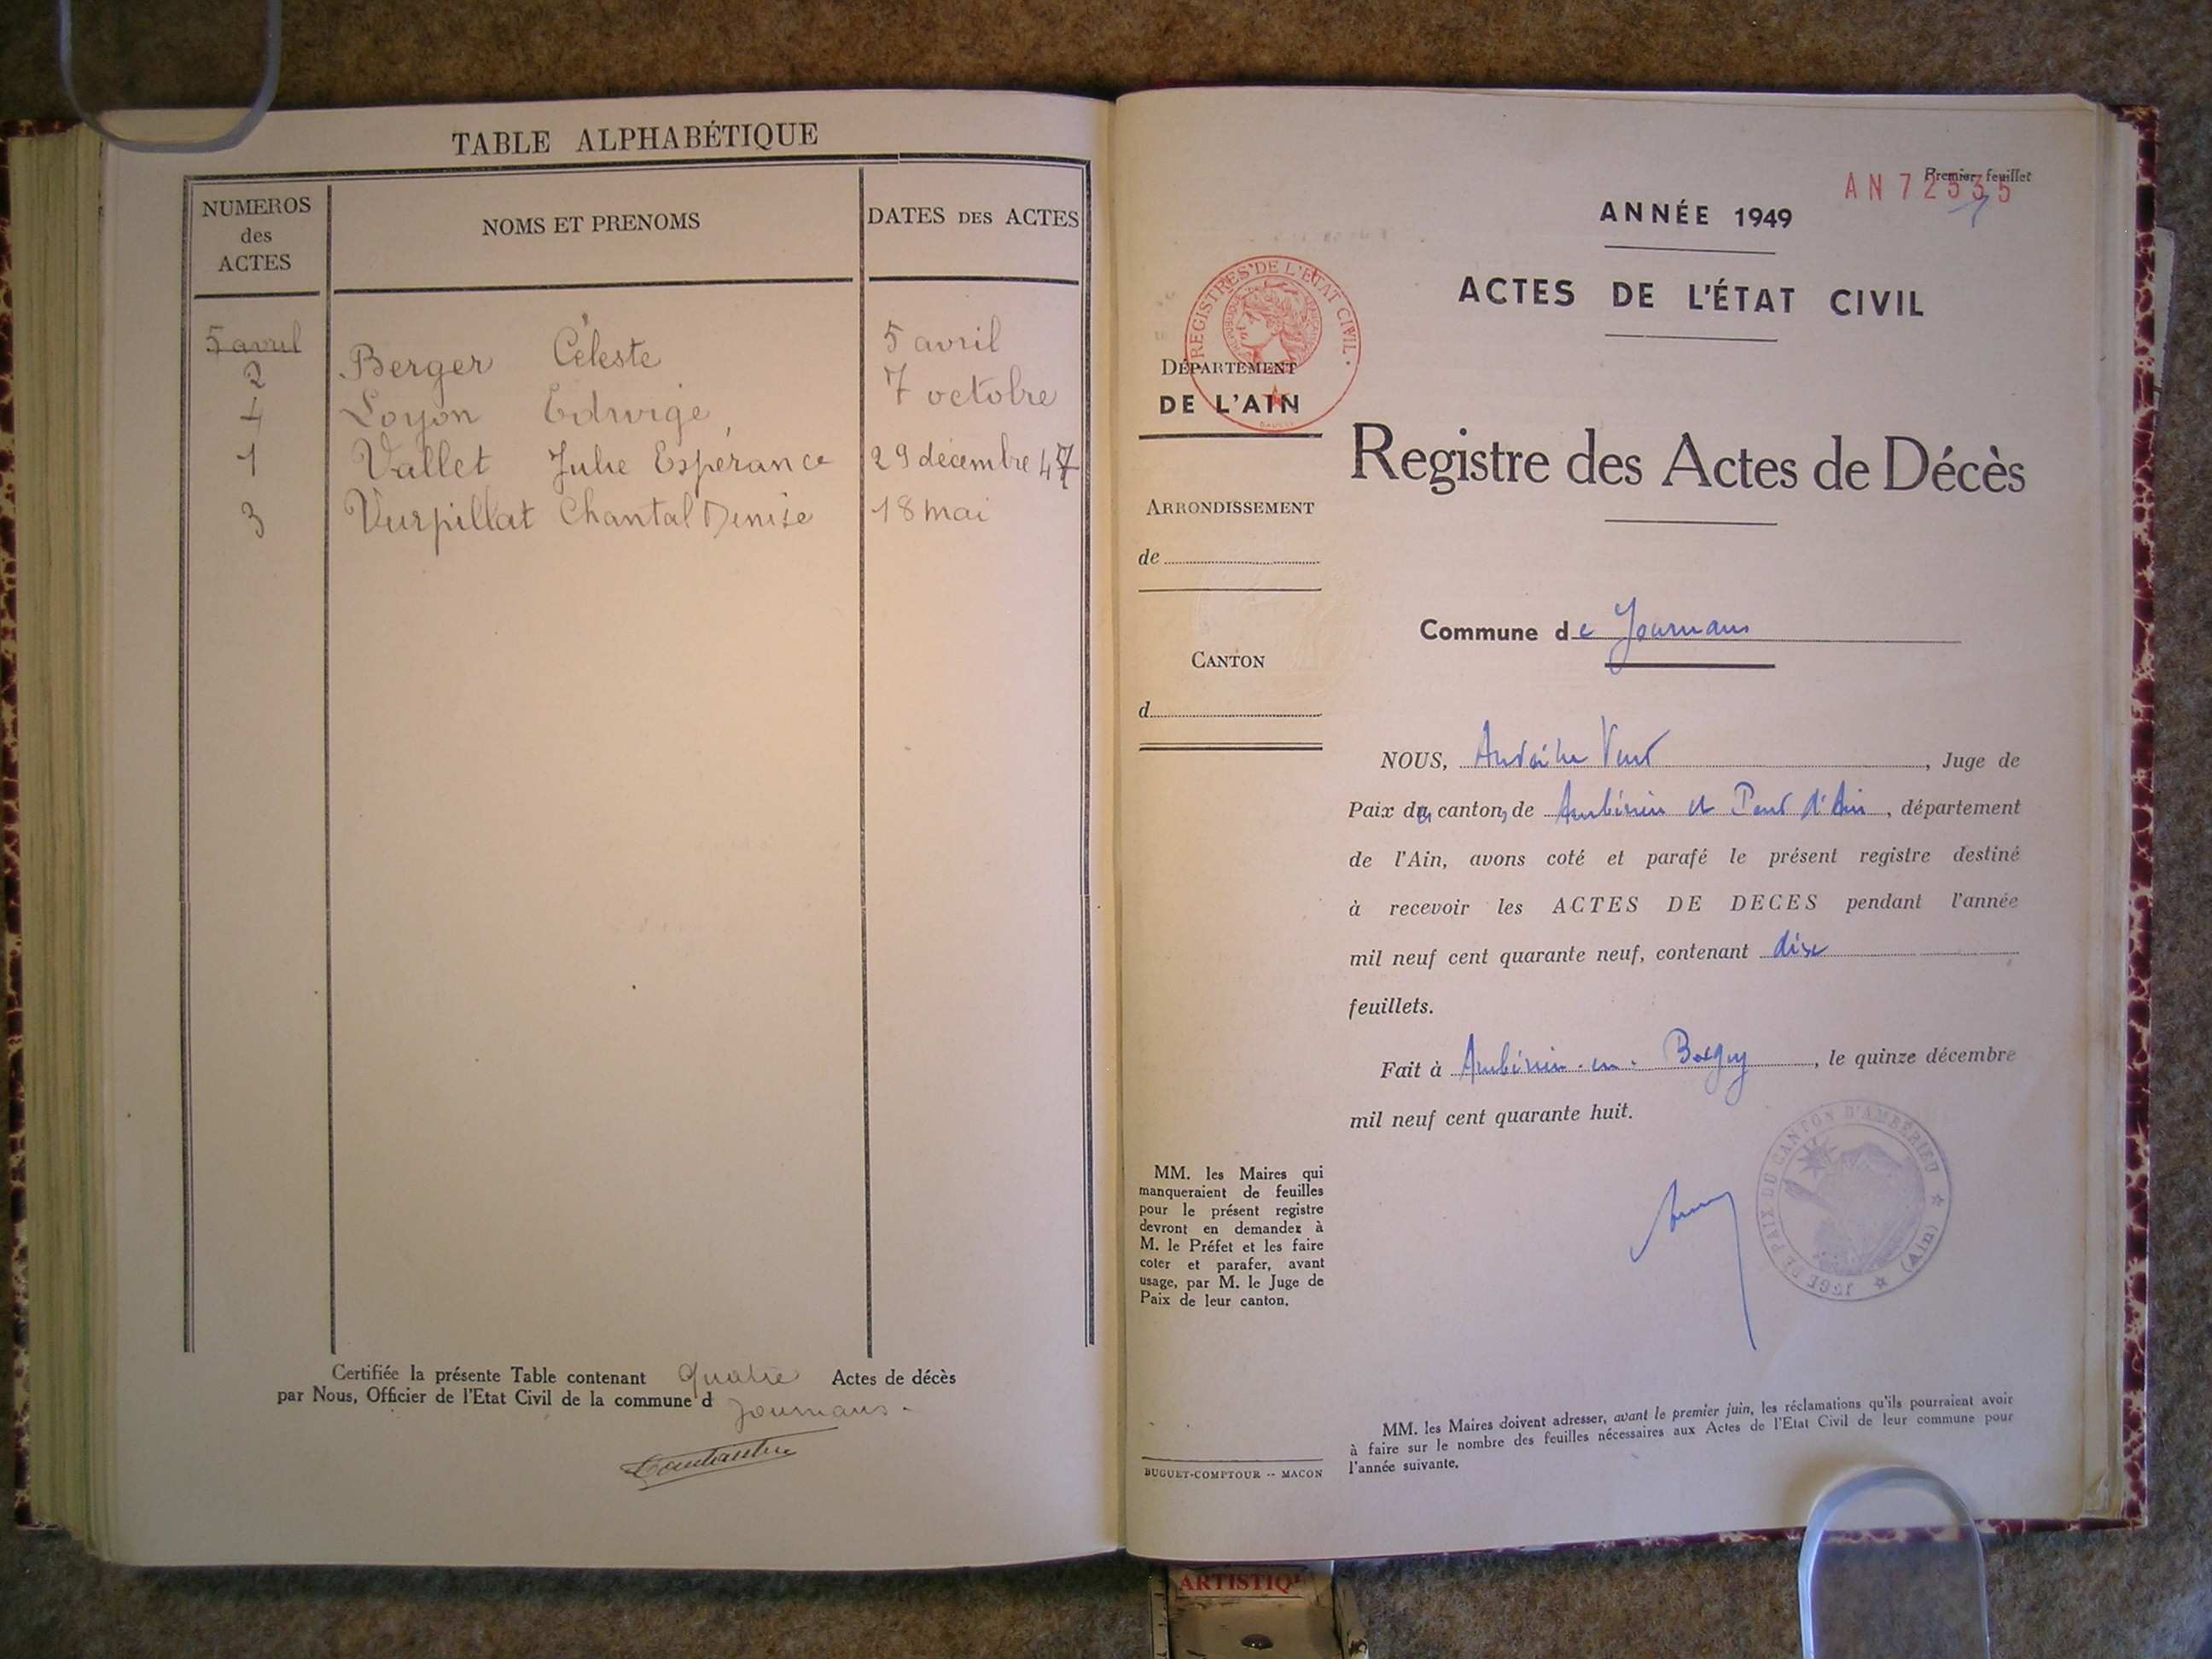 TABLE ALPHABÉTIQUE
NUMEROS des ACTES
NOMS ET PRENOMS
DATES DES ACTES
5 avril
2 Berger Céleste 5 avril
4 Loyon Edwige 7 octobre
1 Vallet Julie Espérance 29 décembre 47
3 Vurpillat Chantal Denise 18 mai
Certifiée la présente Table contenant quatre Actes de décès
par Nous, Officier de l'Etat Civil de la commune d
Journans.
Premier feuillet
AN 72535
ANNÉE 1949
ACTES DE L'ÉTAT CIVIL
REGISTRES DE L'ÉTAT CIVIL
DÉPARTEMENT
DE L'AIN
Registre des Actes de Décès
ARRONDISSEMENT
de
Commune de Journans
CANTON
d
NOUS, , Juge de
Paix des cantons de Ambérieu et Pont d'Ain, département
de l'Ain, avons coté et parafé le présent registre destiné
à recevoir les ACTES DE DECES pendant l'année
mil neuf cent quarante neuf, contenant dix
feuillets.
Fait à Ambérieu-en-Bugey, le quinze décembre
mil neuf cent quarante huit.
JUGE DE PAIX DU CANTON D'AMBÉRIEU (Ain)
MM. les Maires qui
manqueraient de feuilles
pour le présent registre
devront en demander à
M. le Préfet et les faire
coter et parafer, avant
usage, par M. le Juge de
Paix de leur canton.
BUGUET-COMPTOUR -- MACON
MM. les Maires doivent adresser, avant le premier juin, les réclamations qu'ils pourraient avoir
à faire sur le nombre des feuilles nécessaires aux Actes de l'Etat Civil de leur commune pour
l'année suivante.
ARTISTIQ